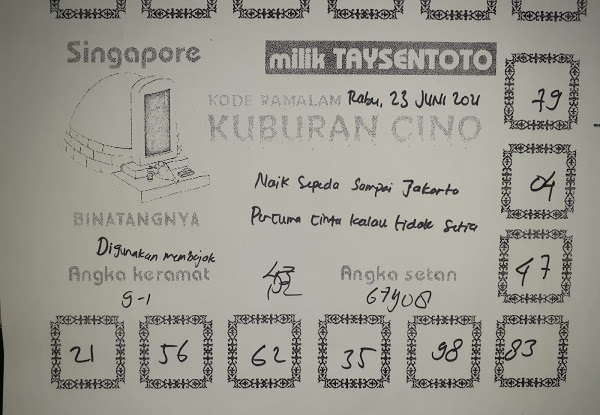 Singapore
milik TAYSENTOTO
KODE RAMALAM Rabu, 23 JUNI 2021
KUBURAN CINO
79
Naik Sepeda Sampai Jakarta
04
Percuma Cinta Kalau tidak Setia
BINATANGNYA
47
Digunakan membajak
Angka keramat
Angka setan
9-1
21
56
62
35
98
83